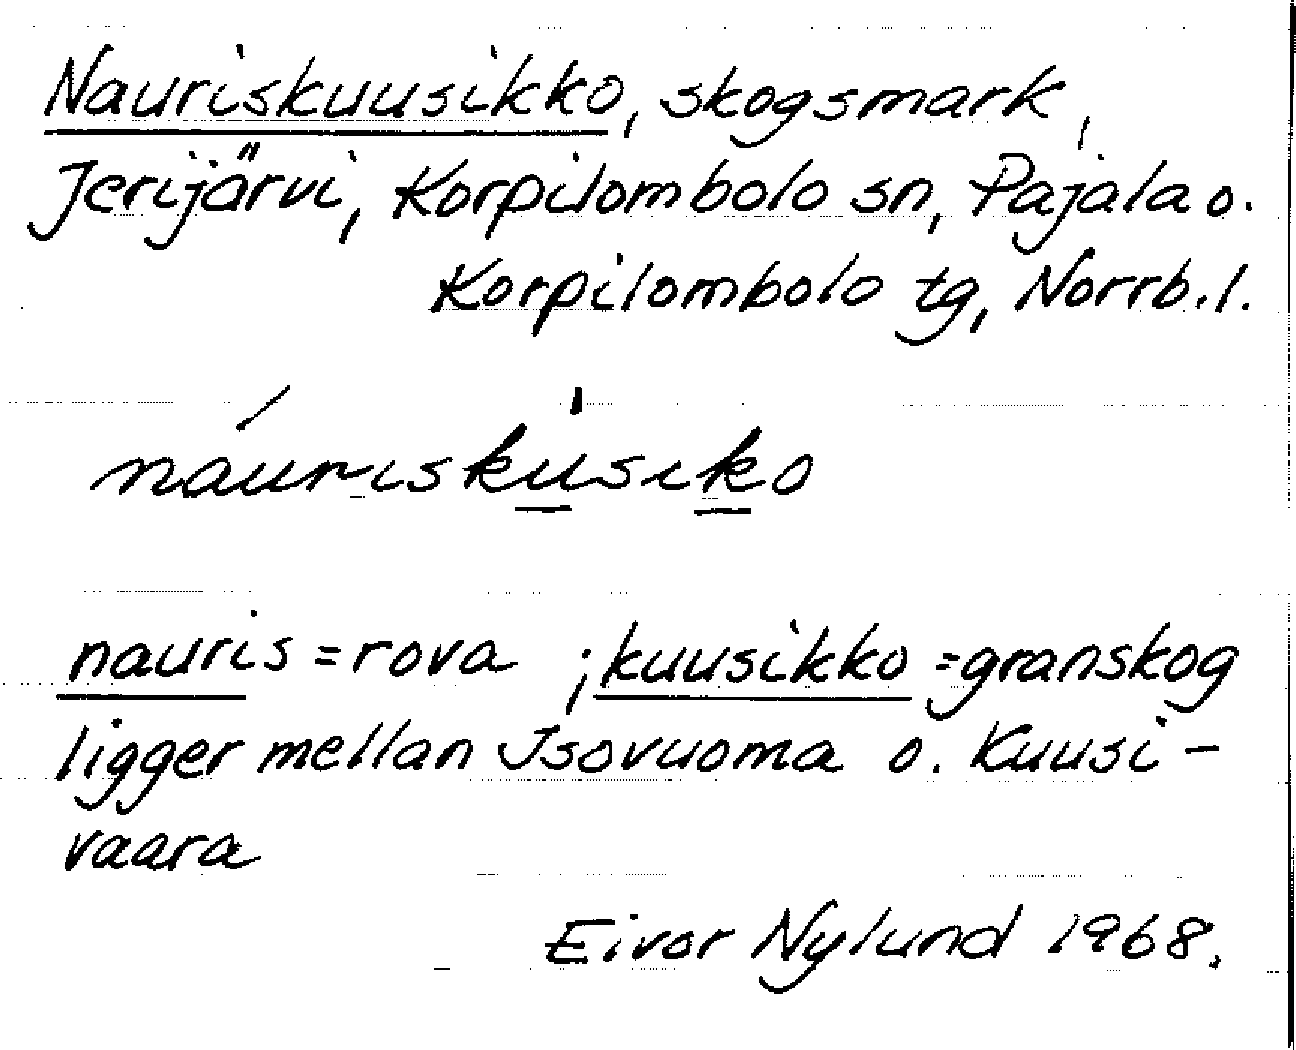 Nauriskuusikko, skogsmark,
Jerijärvi, Korpilombolo sn, Pajala o.
Korpilombolo tg, Norrb.l.
náuriskùsiko
nauris = rova ; kuusikko = granskog
ligger mellan Isovuoma o. Kuusi-
vaara
Eivor Nylund 1968.